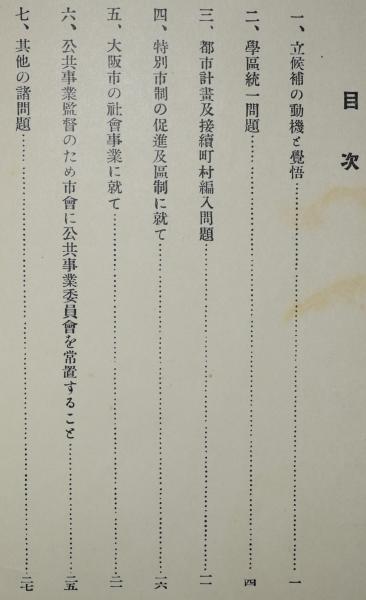 目次
一、立候補の動機と覺悟……一
二、學區統一問題……四
三、都市計畫及接續町村編入問題……一一
四、特別市制の促進及區制に就て……一六
五、大阪市の社會事業に就て……二一
六、公共事業監督のため市會に公共事業委員會を常置すること……二五
七、其他の諸問題……二七